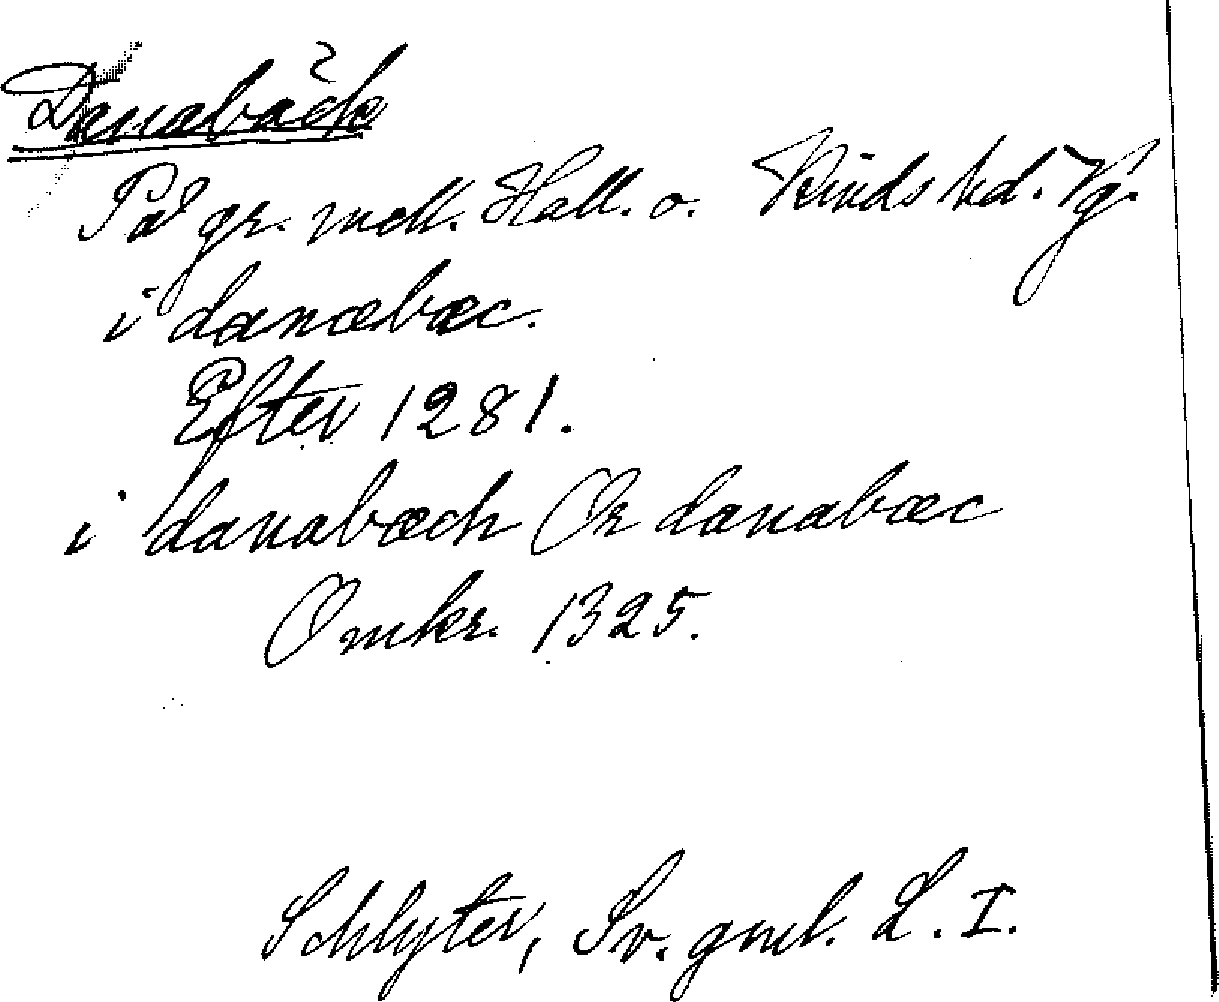 Danabäck
På gr. mell. Hall. o. Kinds hd. Vg.
i danæbæc.
Efter 1281.
i danabæch Or danabæc
Omkr. 1325.
Schlyter, Sv. gml. L. I.